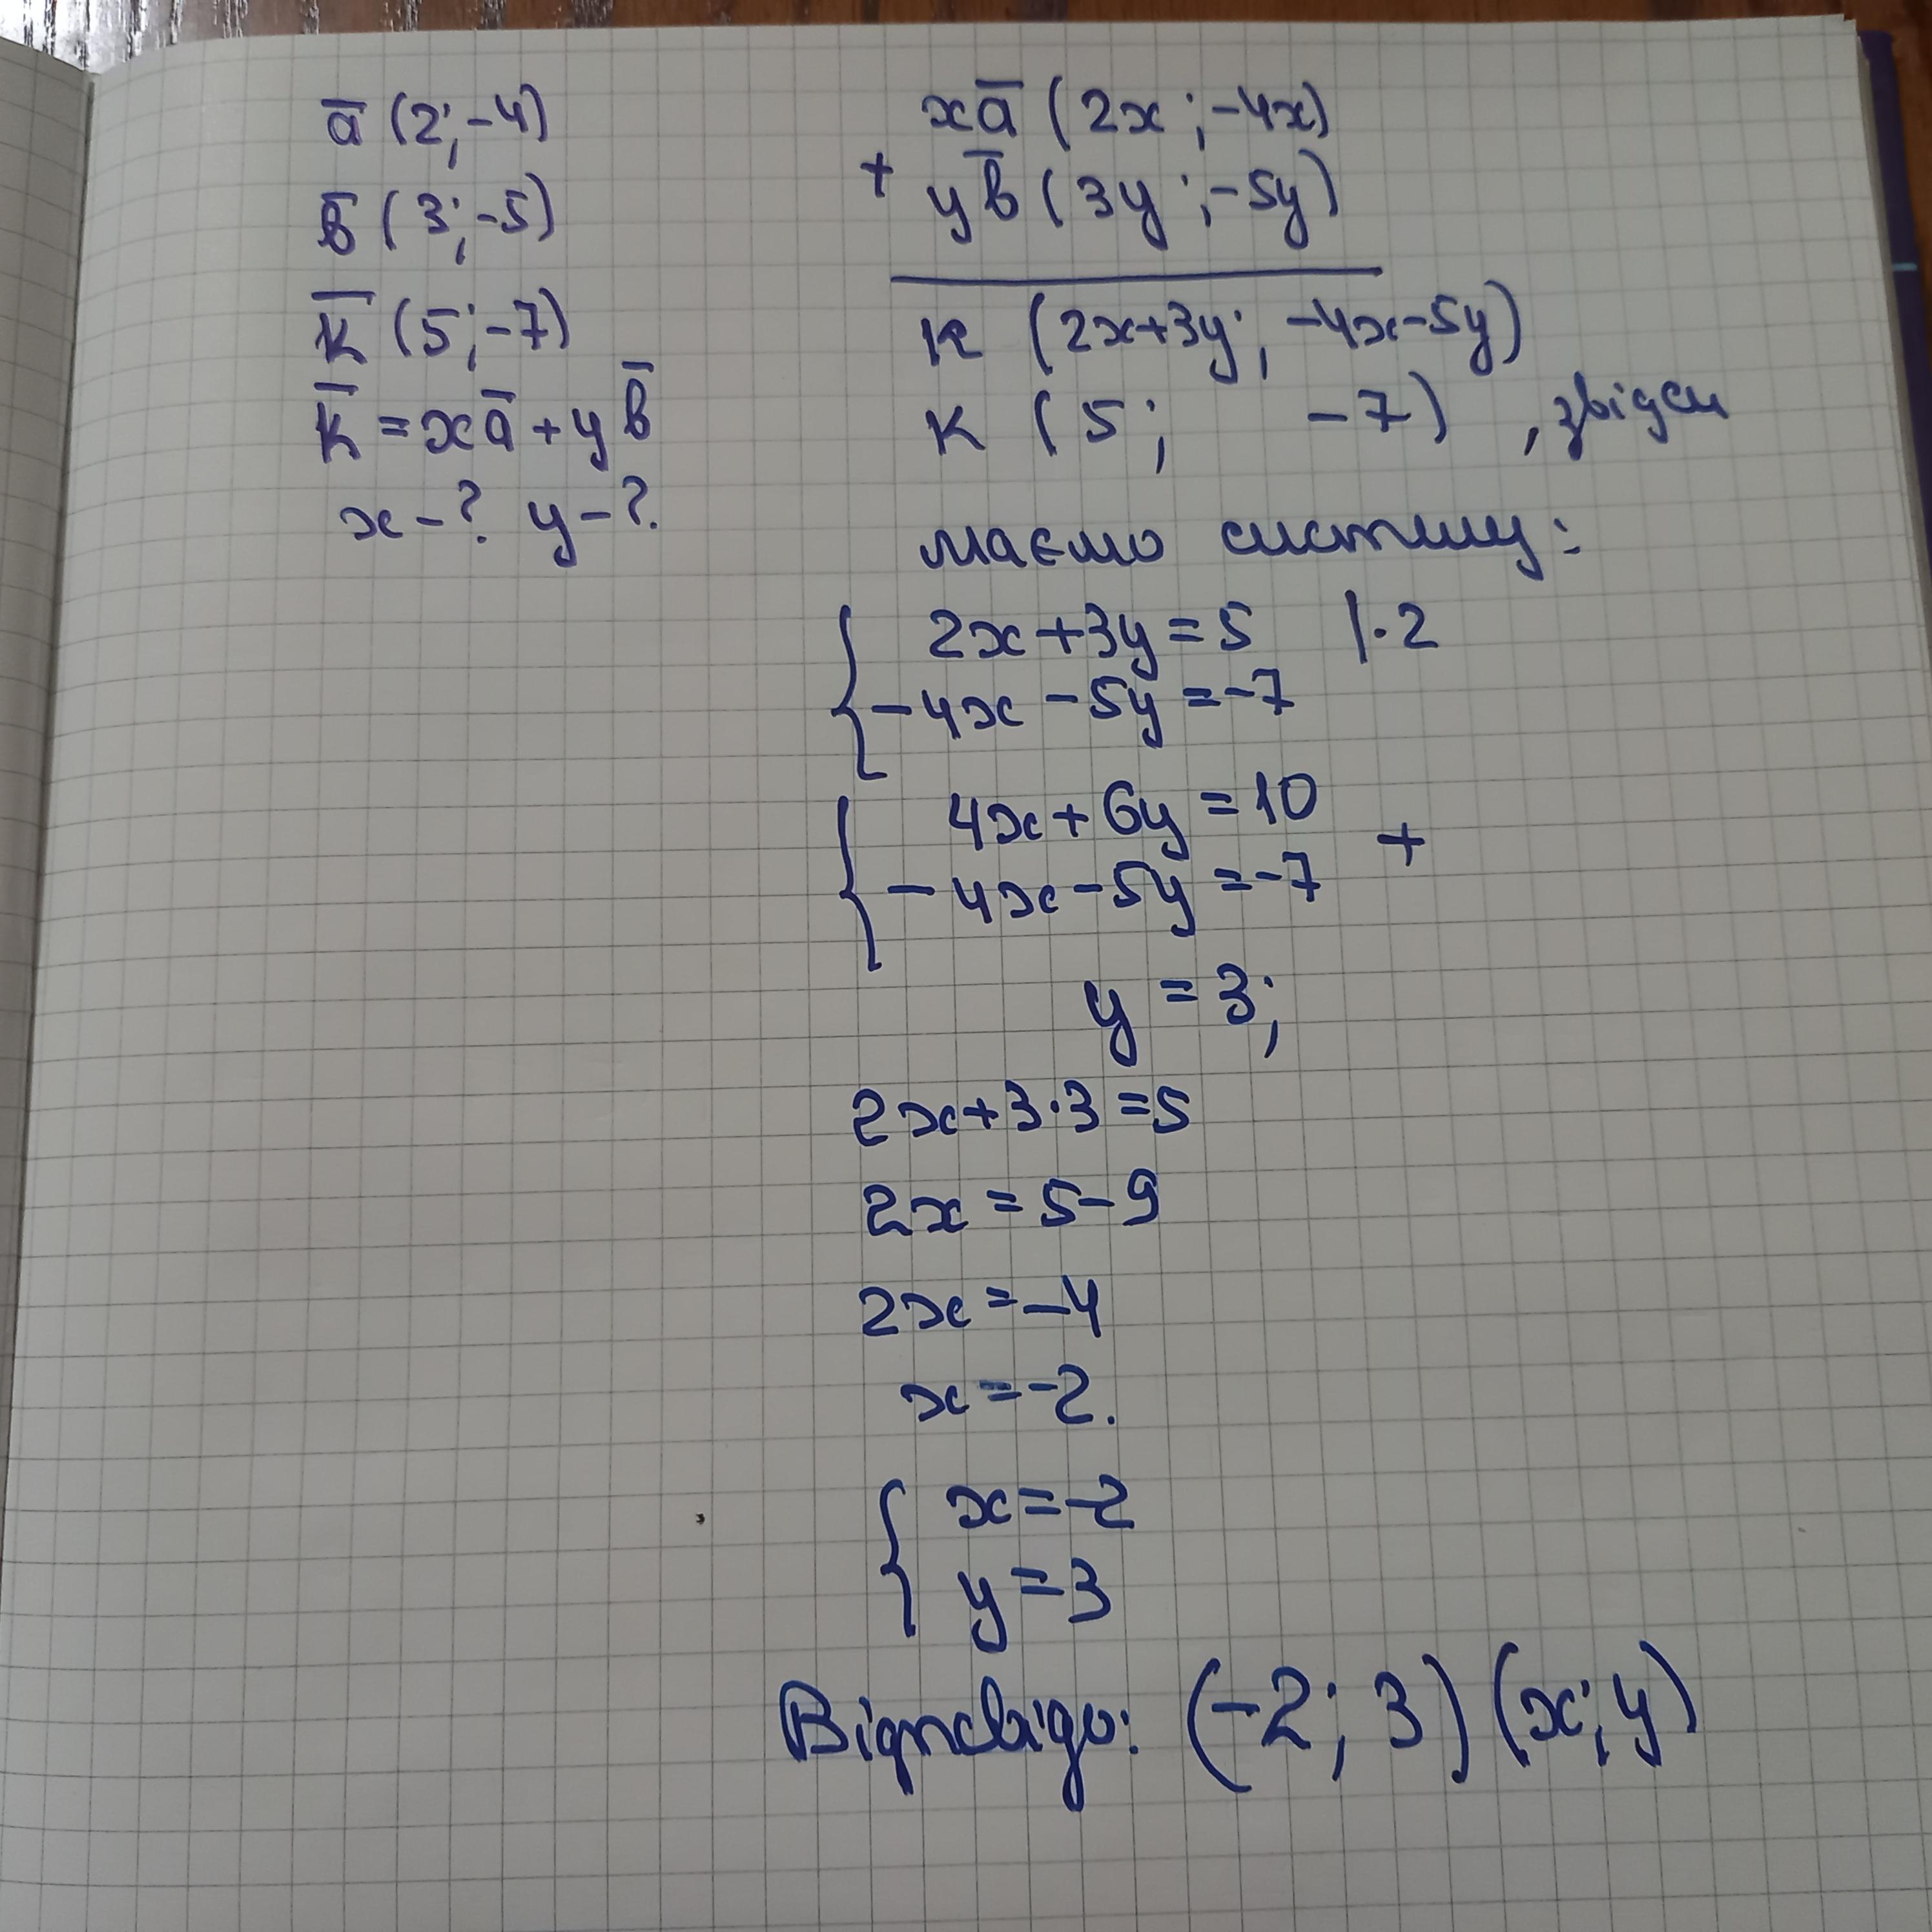 a̅ (2; -4)
b̅ (3; -5)
K̅ (5; -7)
K̅ = xa̅ + yb̅
x - ? y - ?.
xa̅ (2x ; -4x)
+ yb̅ (3y ; -5y)
K (2x+3y; -4x-5y)
K (5; -7) , звідси
маємо систему:
2x + 3y = 5 | · 2
-4x - 5y = -7
4x + 6y = 10 +
-4x - 5y = -7
y = 3;
2x + 3 · 3 = 5
2x = 5 - 9
2x = -4
x = -2.
x = -2
y = 3
Відповідь: (-2; 3) (x; y)